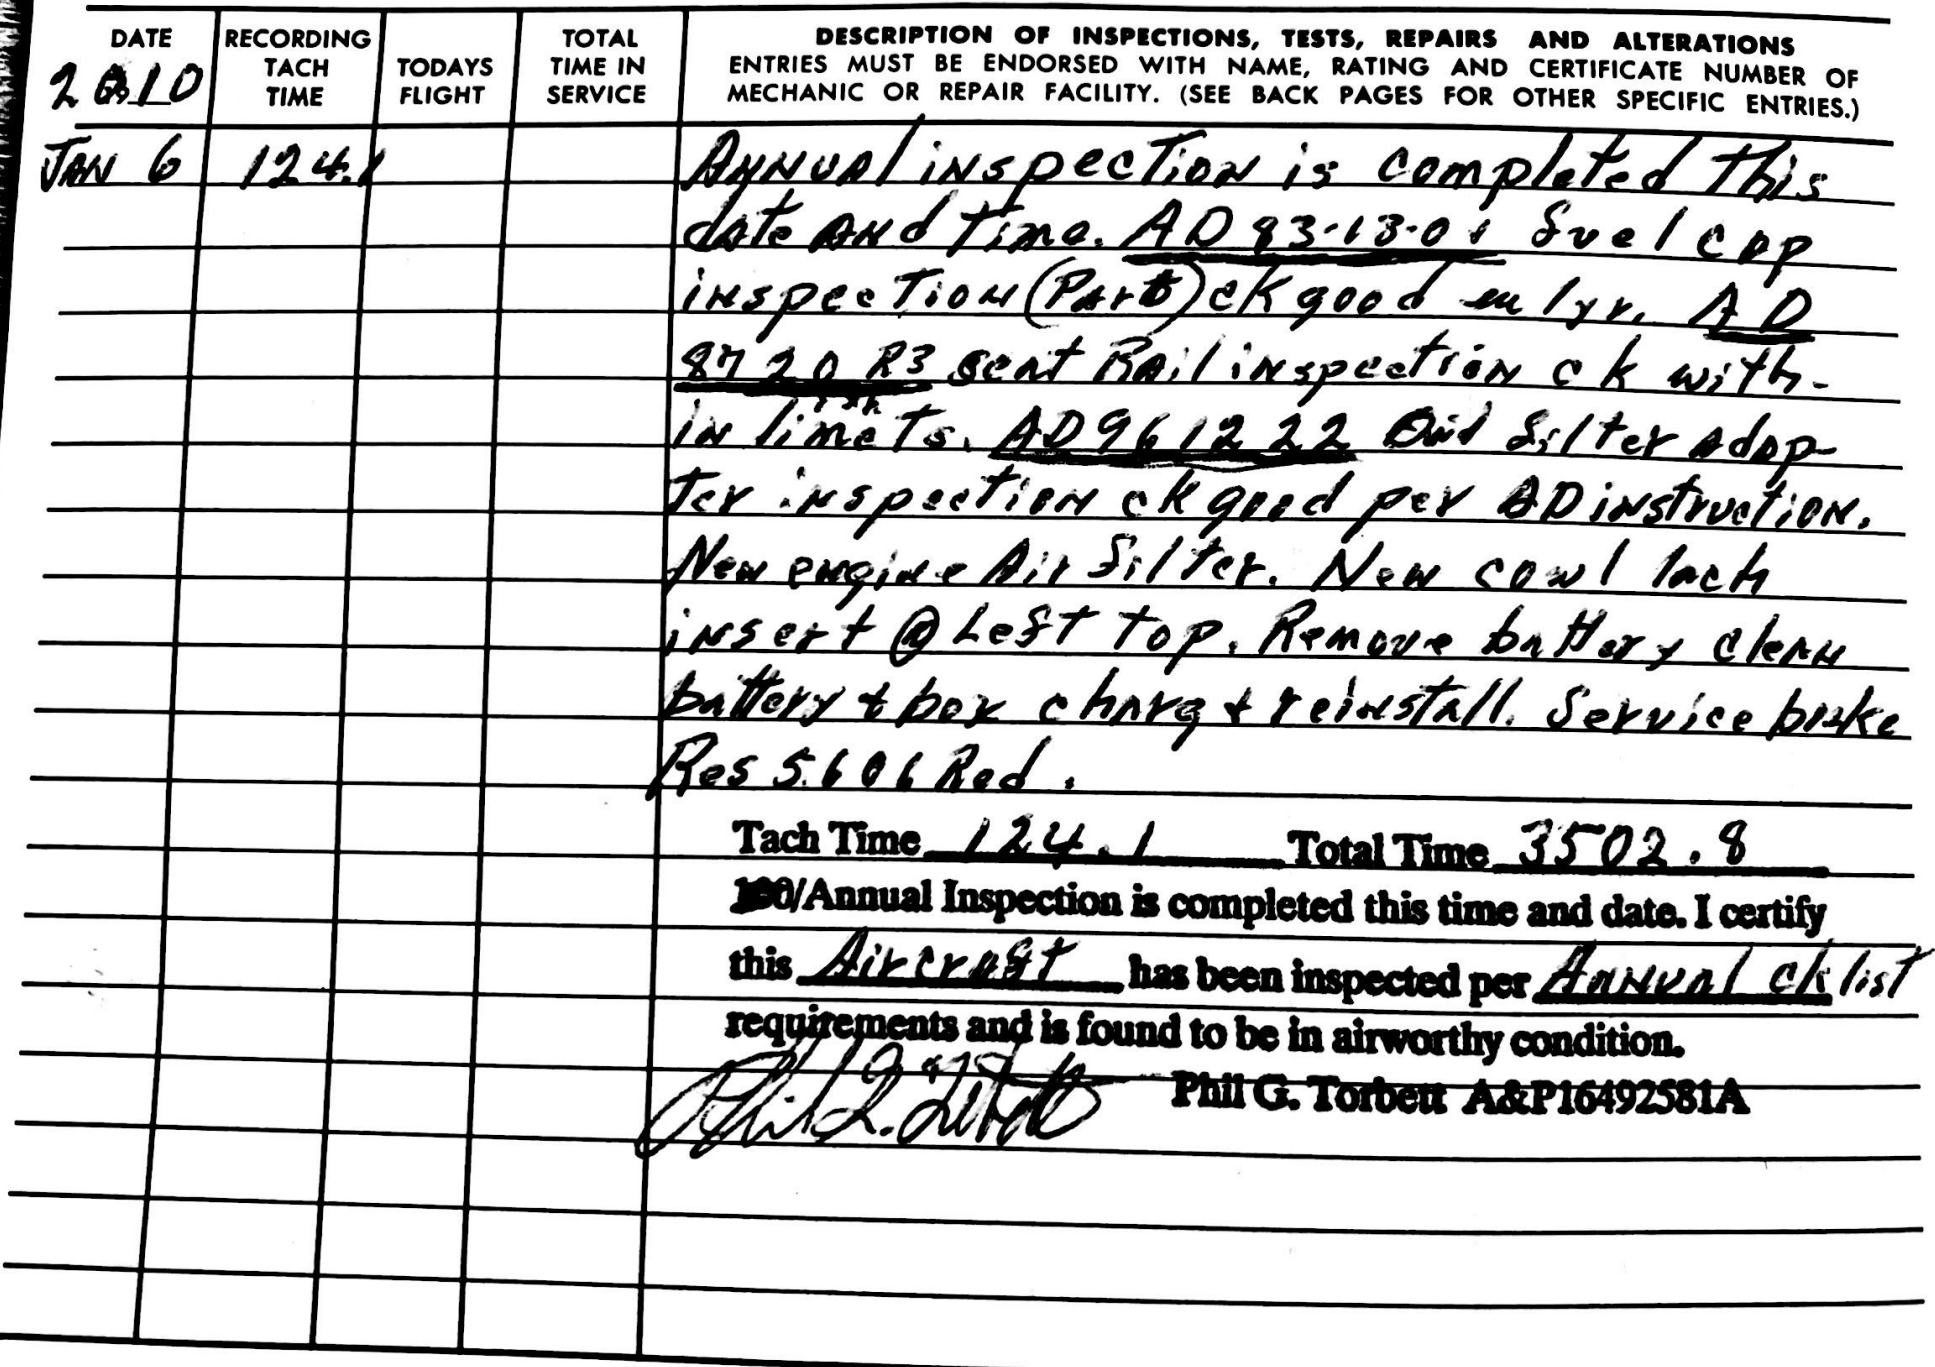 DATE
2010
RECORDING
TACH
TIME
TODAYS
FLIGHT
TOTAL
TIME IN
SERVICE
DESCRIPTION OF INSPECTIONS, TESTS, REPAIRS AND ALTERATIONS
ENTRIES MUST BE ENDORSED WITH NAME, RATING AND CERTIFICATE NUMBER OF
MECHANIC OR REPAIR FACILITY. (SEE BACK PAGES FOR OTHER SPECIFIC ENTRIES.)
JAN 6 124.1 Annual inspection is completed this
date and time. AD 83-13-01 fuel cap
inspection (Part) ck good 1yr. AD
87 20 R3 seat Rail inspection ck with-
in limets. AD 96 12 22 Oil filter adap-
ter inspection ck good per AD instruction.
New engine Air filter. New cowl lach
insert @ Left top. Remove battery clean
battery & box charg & reinstall. Service brake
Res 5606 Red.
Tach Time 124.1 Total Time 3502.8
100/Annual Inspection is completed this time and date. I certify
this Aircraft has been inspected per Annual ck list
requirements and is found to be in airworthy condition.
Phil G. Torbett Phil G. Torbett A&P16492581A